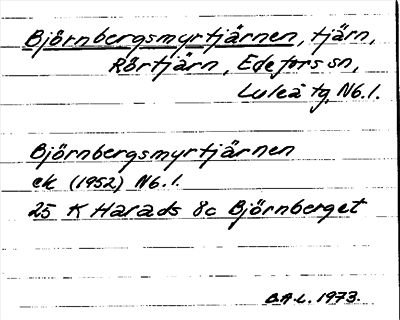 Björnbergsmyrtjärnen, tjärn,
Rörtjärn, Edefors sn,
Luleå tg, Nb.l.
Björnbergsmyrtjärnen
ek (1952) Nb.l.
25 K Harads 8c Björnberget
B.A-L. 1973.